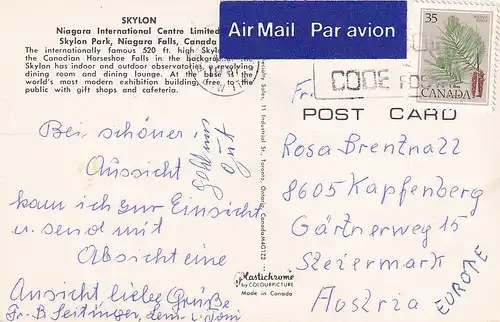 SKYLON
Niagara International Centre Limited
Skylon Park, Niagara Falls, Canada
The internationally famous 520 ft. high Skylon
the Canadian Horseshoe Falls in the background.
Skylon has indoor and outdoor observatories, revolving
dining room and dining lounge. At the base is the
world's most modern exhibition building, free to the
public with gift shops and cafeteria.
Air Mail Par avion
35
CANADA
CODE
POST CARD
Bei schöner
Aussicht
kam ich zur Einsicht
u. send mit
Absicht eine
Ansicht liebe Grüße
Fr. B. Seitinger
gut
Specialty Sales, 11 Industrial St., Toronto, Ontario, Canada M4G1Z2
Plastichrome
by COLOURPICTURE
Made in Canada
Fr.
Rosa Brentnall
8605 Kapfenberg
Gärtnerweg 15
Steiermark
Austria
EUROPE